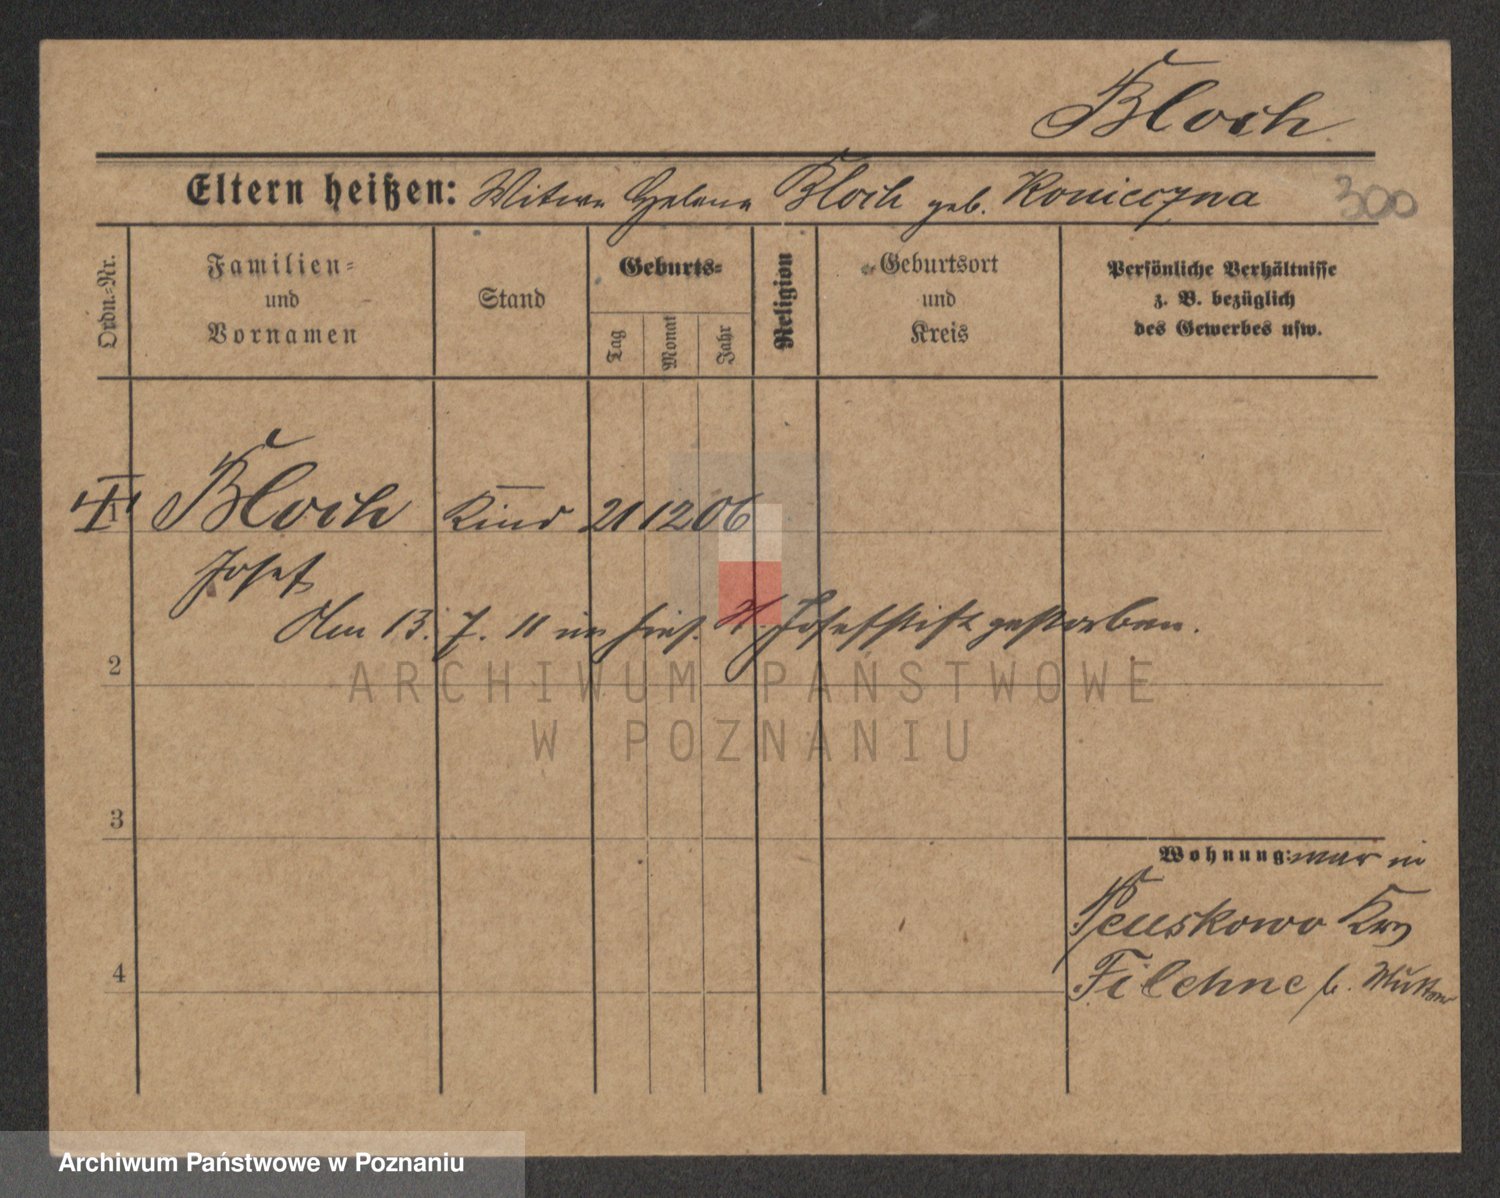 Bloch
Eltern heißen: Witwe Helene Bloch geb. Konieczna
300
Ordn.-Nr.
Familien- und Vornamen
Stand
Geburts-
Tag
Monat
Jahr
Religion
Geburtsort und Kreis
Persönliche Verhältnisse z. B. bezüglich des Gewerbes usw.
1 Bloch Kind 21 12 06
Josef
Am 13. 7. 11 im hies. St. Josefstift gestorben.
2
ARCHIWUM PAŃSTWOWE
W POZNANIU
3
Wohnung: war in
4
Filehne b. Mutter
Archiwum Państwowe w Poznaniu